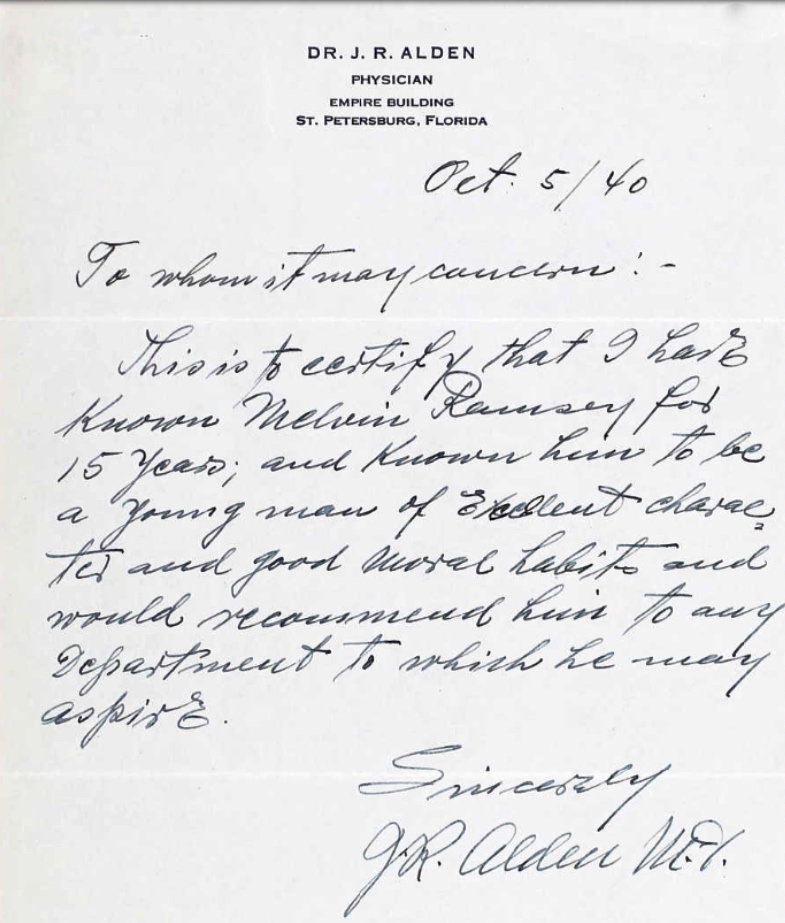 DR. J. R. ALDEN
PHYSICIAN
EMPIRE BUILDING
ST. PETERSBURG, FLORIDA
Oct. 5/40
To whom it may concern:-
This is to certify that I have
Known Melvin Ramsey for
15 Years; and Known him to be
a Young man of Excellent charac=
ter and good Moral habits and
would recommend him to any
Department to which he may
aspire.
Sincerely
J.R. Alden M.D.